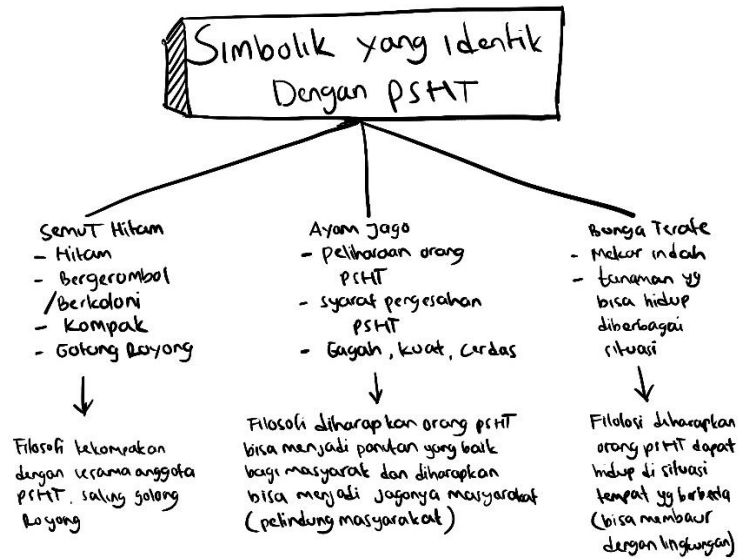 Simbolik yang identik
Dengan PSHT
Semut Hitam
- Hitam
- Bergerombol
/Berkoloni
- Kompak
- Gotong Royong
Filosofi kekompakan
dengan sesama anggota
PSHT. saling golong
Royong
Ayam Jago
- peliharaan orang
PSHT
- syarat pengesahan
PSHT
- Gagah, kuat, cerdas
Filosofi diharapkan orang PSHT
bisa menjadi panutan yang baik
bagi masyarakat dan diharapkan
bisa menjadi Jagonya masyarakat
(pelindung masyarakat)
Bunga Terate
- Mekar indah
- tanaman yg
bisa hidup
diberbagai
situasi
Filolosi diharapkan
orang PSHT dapat
hidup di situasi
tempat yg berbeda
(bisa membaur
dengan lingkungan)